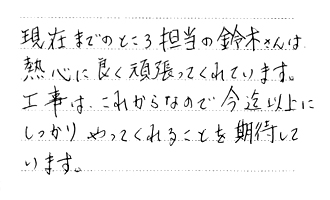 現在までのところ担当の鈴木さんは
熱心に良く頑張ってくれています。
工事は、これからなので今迄以上に
しっかりやってくれることを期待して
います。